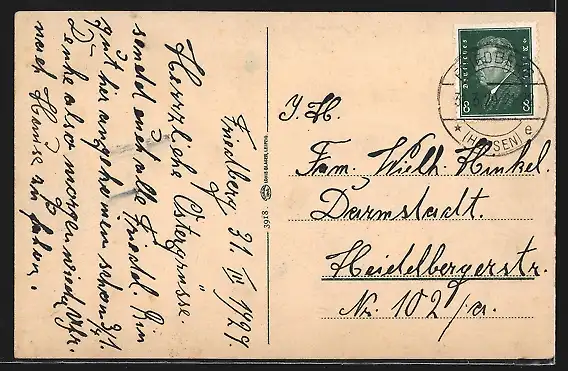 Friedberg 31. III 1929.
Herzliche Ostergrüsse
sendet euch alle Friedel. Bin
gut hier angekommen schon 3/4 1.
Denke also morgen wieder
nach Hause zu fahren.
3918.
J. H.
Fam. Wilh. Hinkel.
Darmstadt.
Heidelbergerstr.
Nr. 102/a.
Deutsches Reich
8 8
FRIEDBERG
* (HESSEN) e